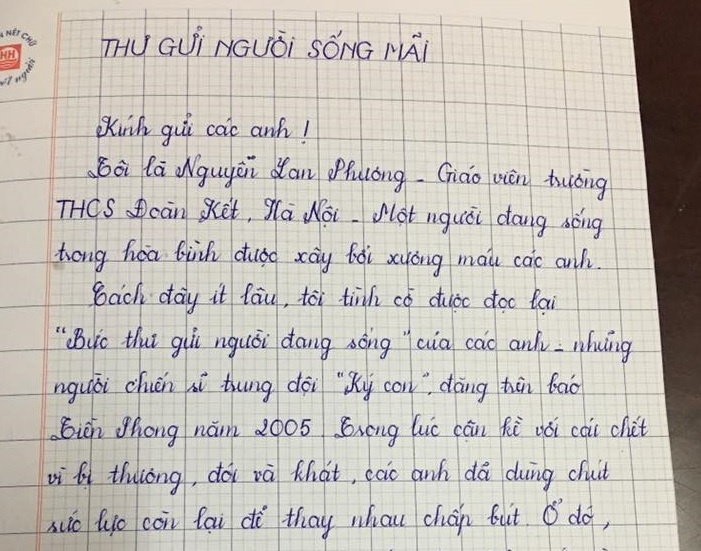 NÉT CHỮ
HH
người
THƯ GỬI NGƯỜI SỐNG MÃI
Kính gửi các anh !
Tôi là Nguyễn Lan Phương - Giáo viên trường
THCS Đoàn Kết, Hà Nội - Một người đang sống
trong hòa bình được xây bởi xương máu các anh.
Cách đây ít lâu, tôi tình cờ được đọc lại
"Bức thư gửi người đang sống" của các anh - những
người chiến sĩ trung đội "Ký con", đăng trên báo
Tiền Phong năm 2005. Trong lúc cận kề với cái chết
vì bị thương, đói và khát, các anh đã dùng chút
sức lực còn lại để thay nhau chấp bút. Ở đó,